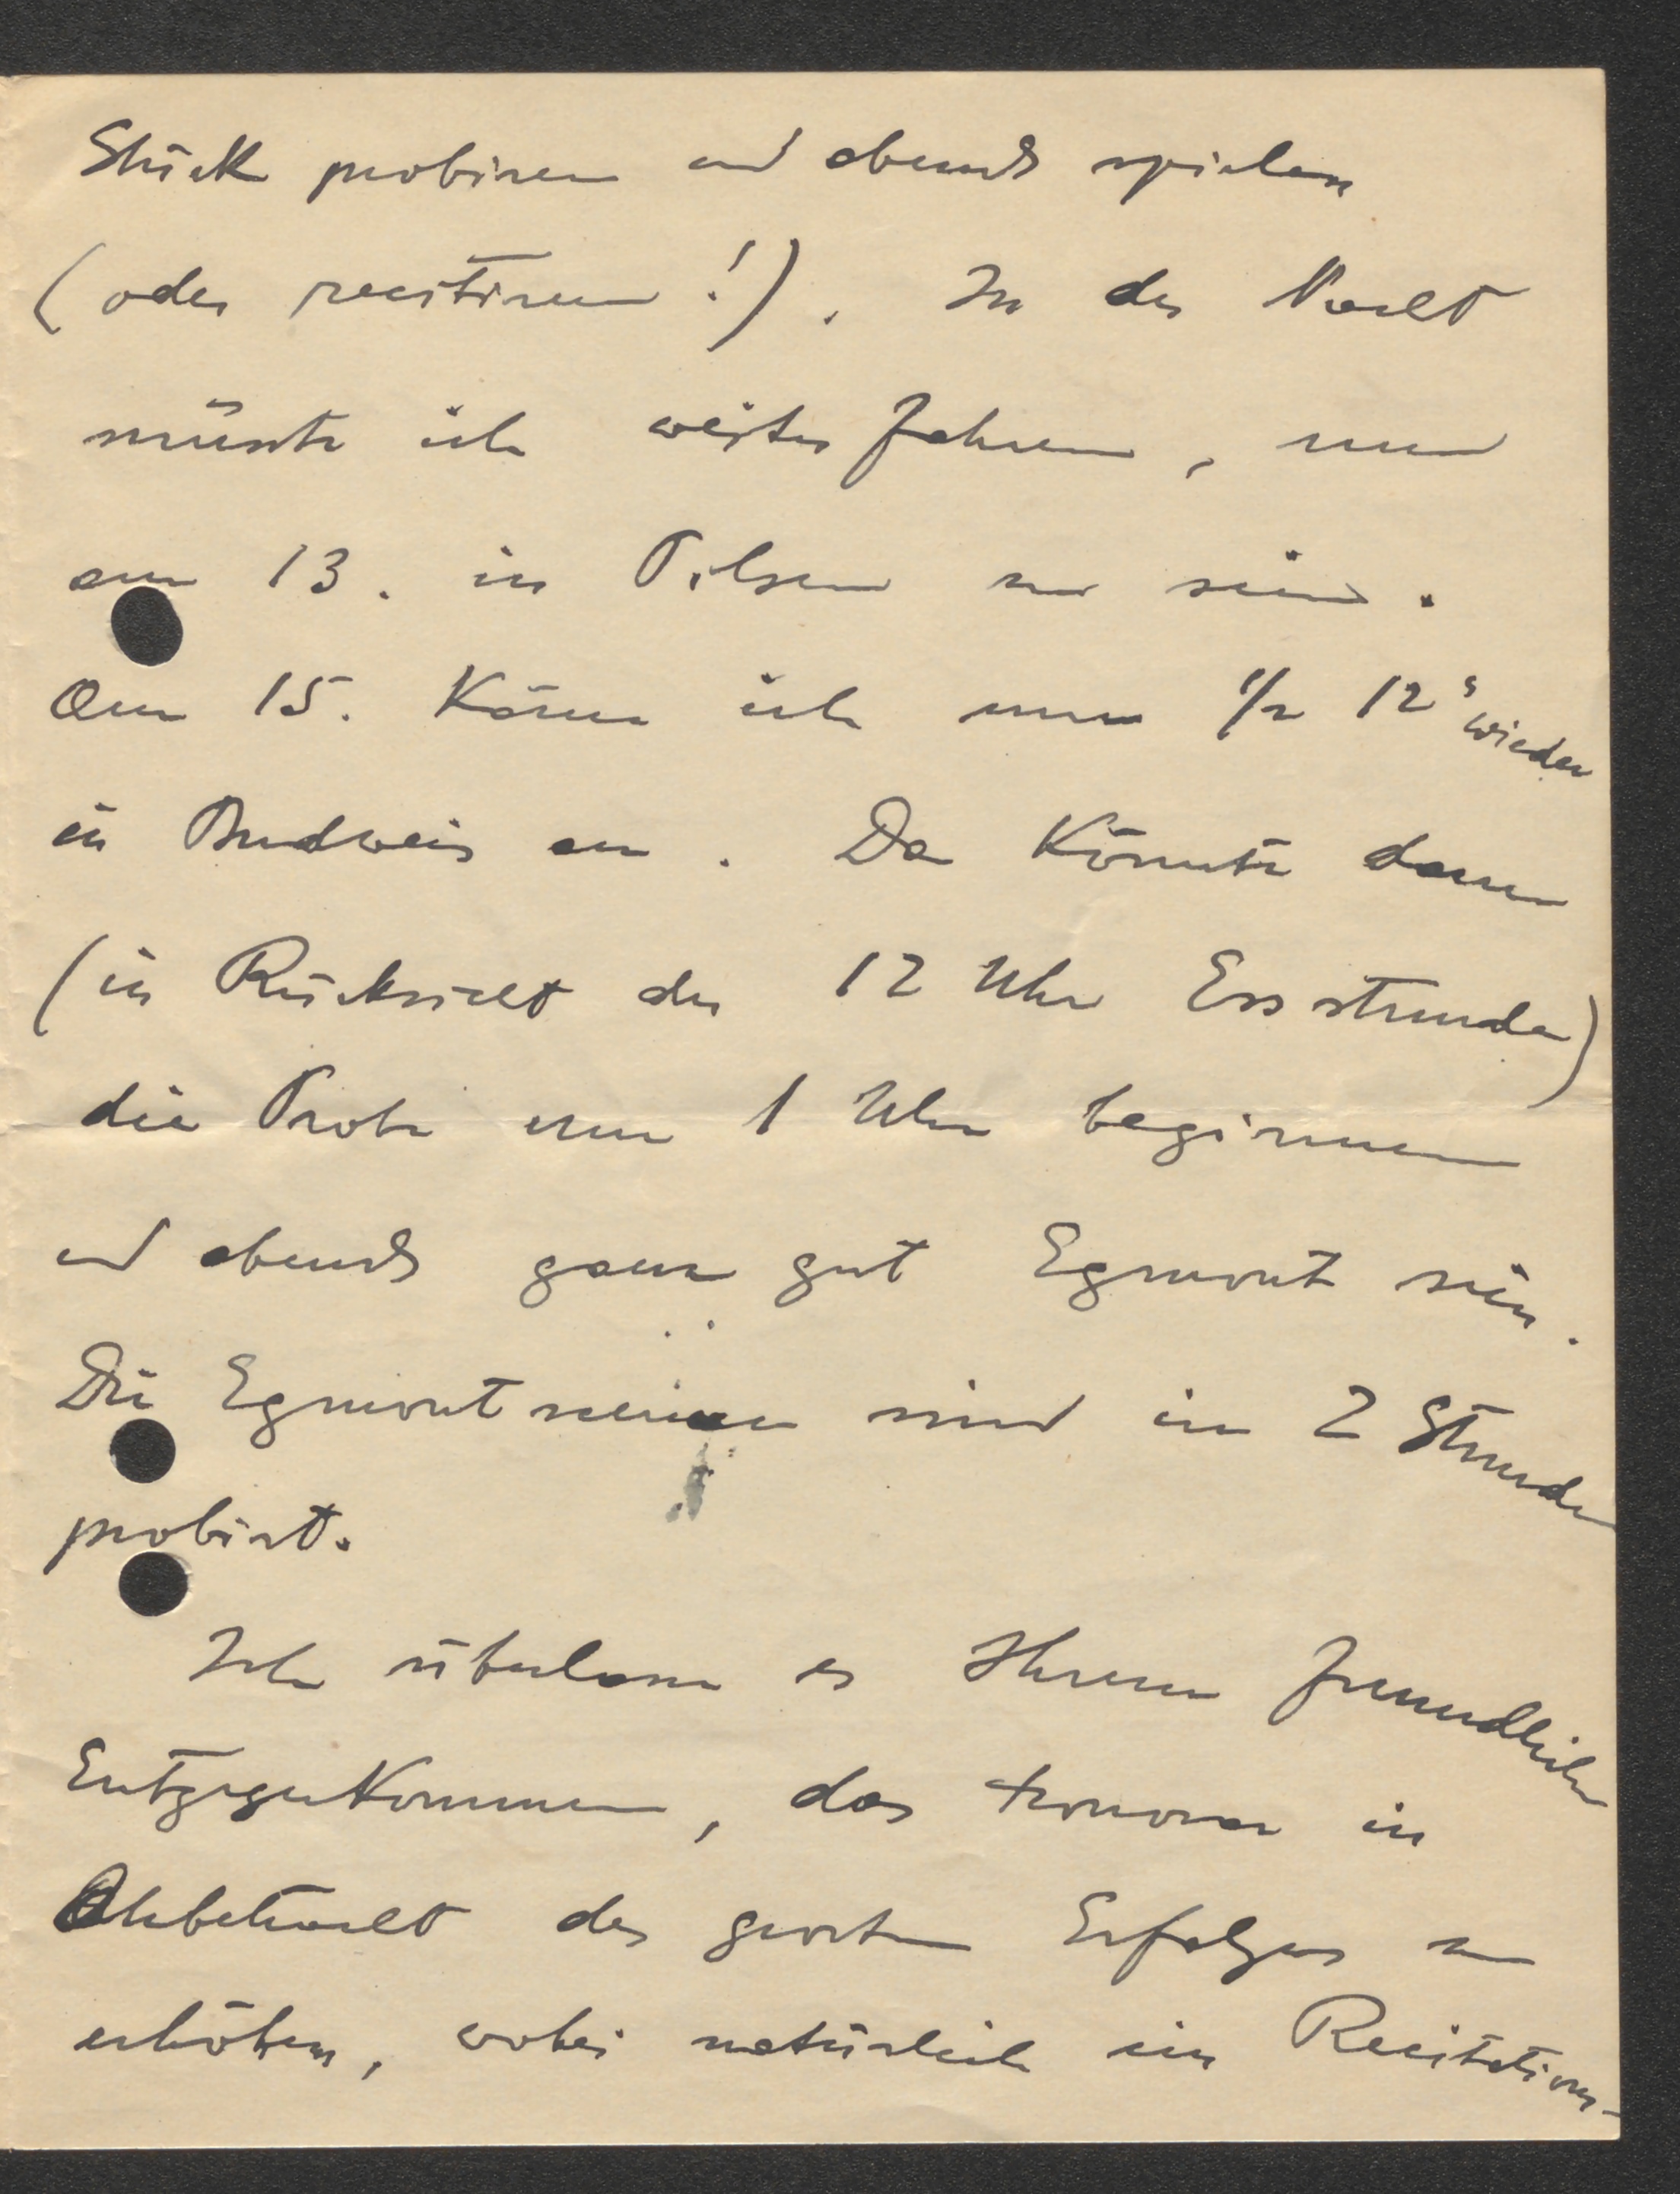 Stück probiren und abends spielen
(oder recitiren!). In der Nacht
müsste ich weiterfahren, um
am 13. in Pilsen zu sein.
Am 15. käme ich um 1/2 12 wieder
in Budweis an. Da könnte dann
(in Rücksicht der 12 Uhr Essstunde)
die Probe um 1 Uhr beginnen
und abends ganz gut Egmont sein.
Die Egmontscenen sind in 2 Stunden
probirt.
Ich überlasse es Ihrem freundlichen
Entgegenkommen, das Honorar in
Anbetracht des großen Erfolges zu
erhöhen, wobei natürlich ein Recitations-